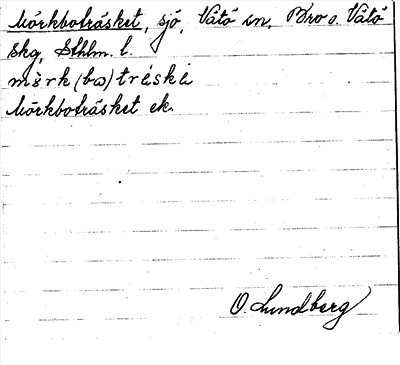 Mörkboträsket, sjö, Vätö sn, Bro o. Vätö
skg, Sthlm. l.
mörk (bo) träske
Mörkboträsket ek.
O. Lundberg